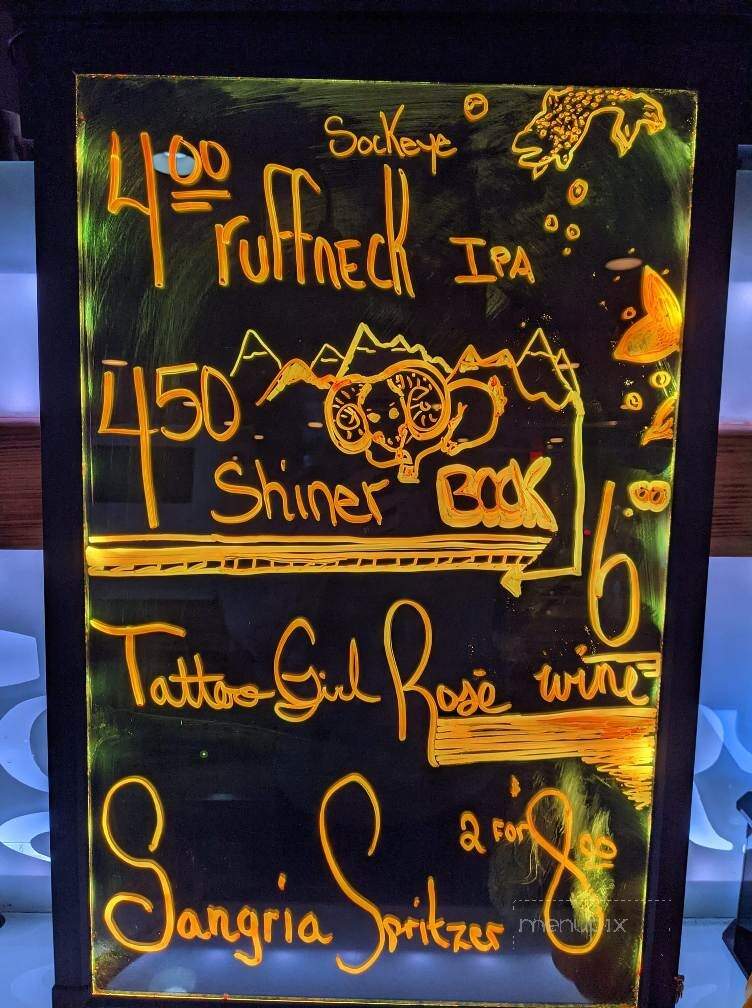 Sockeye
4.00 ruffneck IPA
4.50
Shiner BOCK
6.00
Tattoo Girl Rosé wine
2 FOR $8.00
Sangria Spritzer
menupix